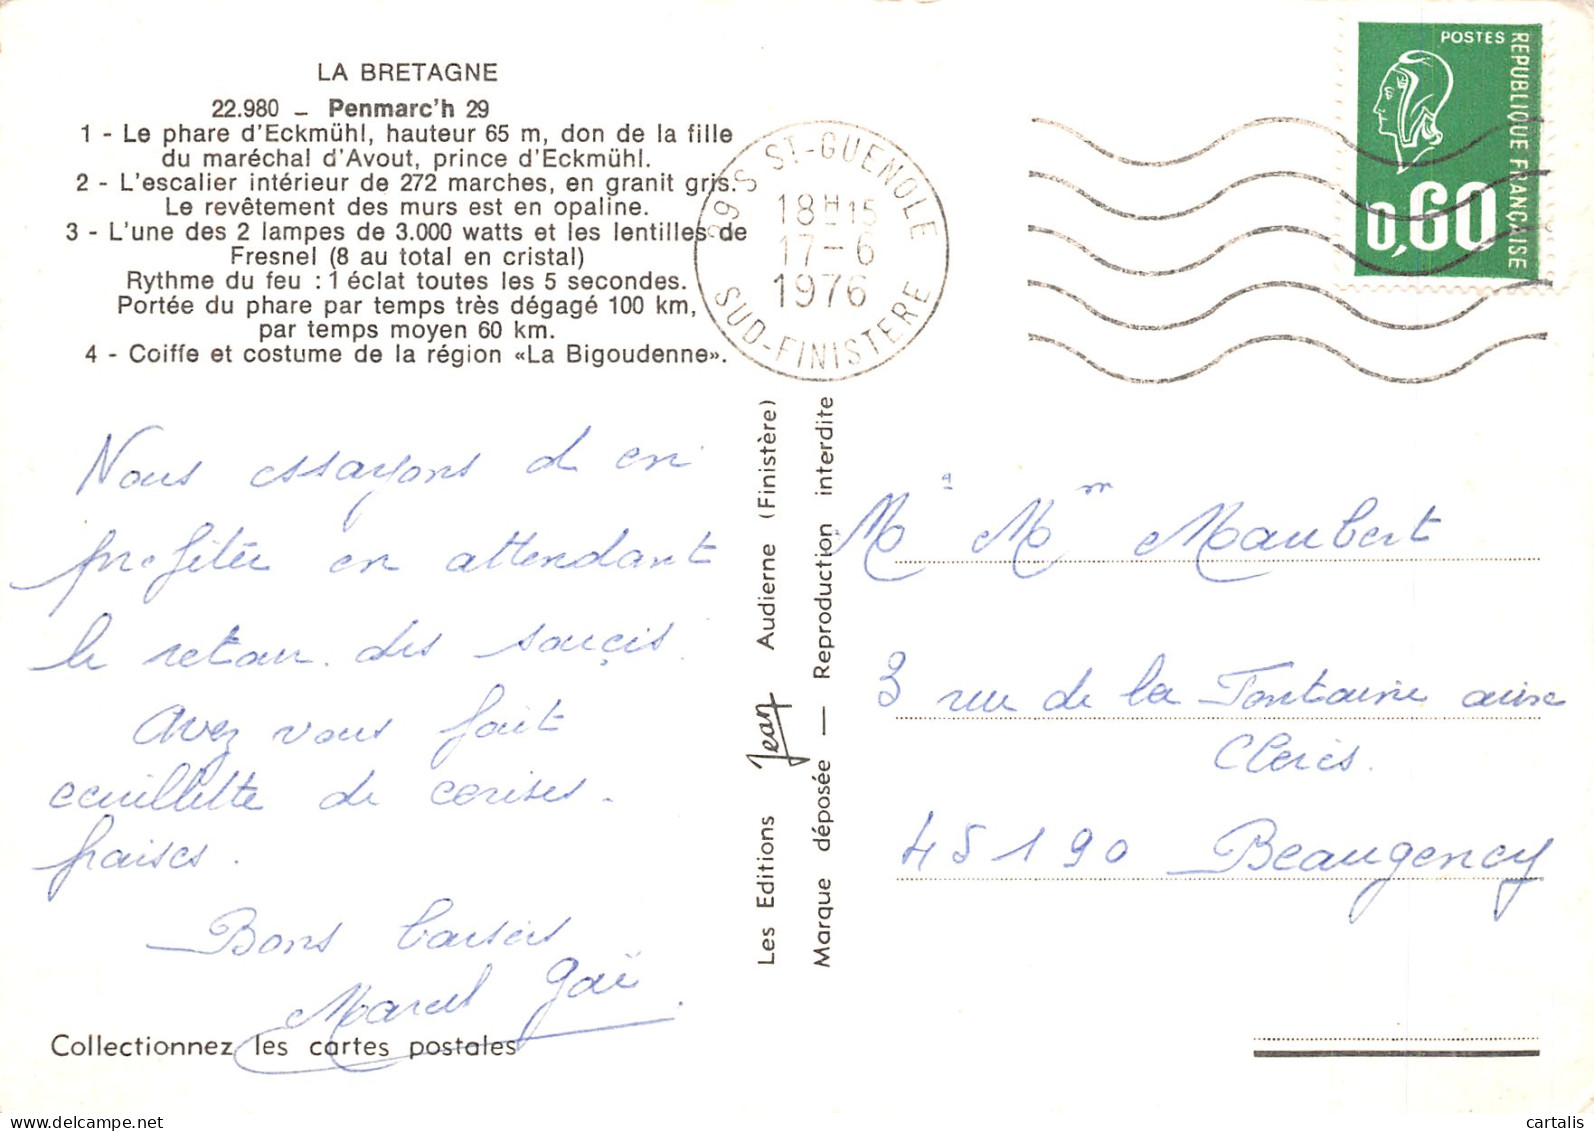 LA BRETAGNE
22.980 – Penmarc'h 29
1 - Le phare d'Eckmühl, hauteur 65 m, don de la fille
du maréchal d'Avout, prince d'Eckmühl.
2 - L'escalier intérieur de 272 marches, en granit gris.
Le revêtement des murs est en opaline.
3 - L'une des 2 lampes de 3.000 watts et les lentilles de
Fresnel (8 au total en cristal)
Rythme du feu : 1 éclat toutes les 5 secondes.
Portée du phare par temps très dégagé 100 km,
par temps moyen 60 km.
4 - Coiffe et costume de la région «La Bigoudenne».
Nous essayons d en
profiter en attendant
le retour des soucis.
Avez vous fait
cueillette de cerises.
fraises.
Bons baisers
Marcel
Collectionnez les cartes postales
Les Editions Jean Audierne (Finistère)
Marque déposée — Reproduction interdite
29 S ST-GUENOLE
18H15
17-6
1976
SUD-FINISTERE
POSTES
REPUBLIQUE FRANÇAISE
0,60
Mr Mm Maubert
3 rue de la Fontaine aux
Clercs.
45190 Beaugency
cartalis
www.delcampe.net